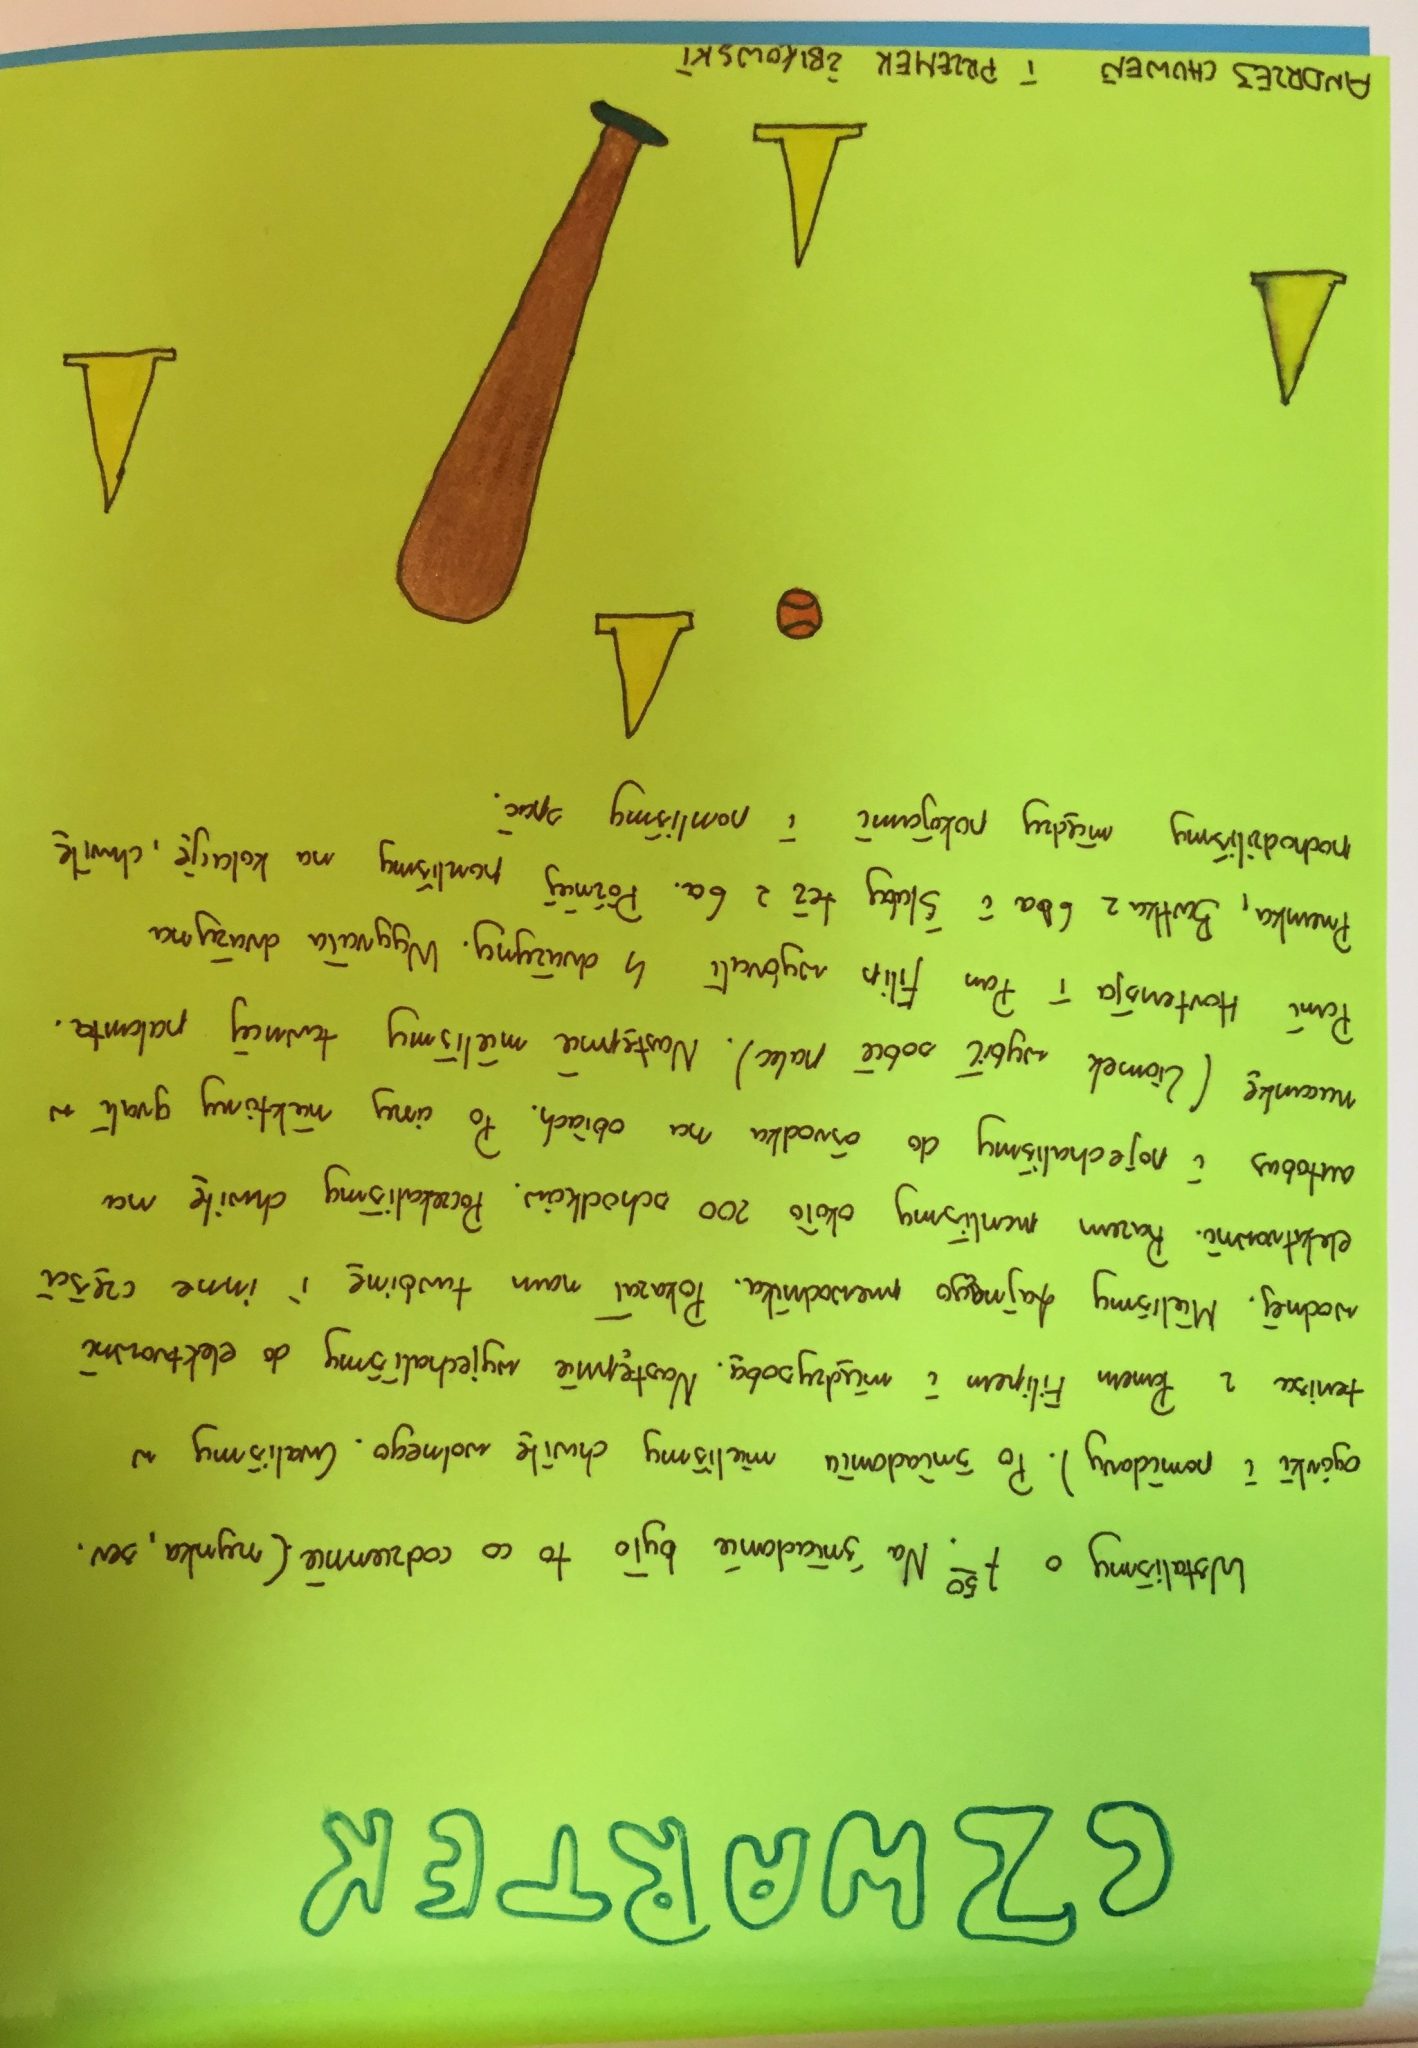 CZWARTEK
Wstaliśmy o 7 50. Na śniadanie było to co codziennie (szynka, ser,
ogórki i pomidory). Po śniadaniu mieliśmy chwilę wolnego. Graliśmy w
tenisa z Panem Filipem i międzysobą. Następnie wyjechaliśmy do elektrowni
wodnej. Mieliśmy fajnego przewodnika. Pokazał nam turbinę i inne części
elektrowni. Razem przeszliśmy około 200 schodków. Poczekaliśmy chwilę na
autobus i pojechaliśmy do ośrodka na obiad. Po ciszy niektórzy grali w
(Ziomek wybił sobie palec). Następnie mieliśmy turniej palanta.
Pani Hortensja i Pan Filip wybrali 4 drużyny. Wygrała drużyna
Przemka, Bartka z 6a i Śluby też z 6a. Później poszliśmy na kolację, chwilę
pochodziliśmy między pokojami i poszliśmy spać.
ANDRZEJ CHUWEŃ i PRZEMEK ŻBIKOWSKI